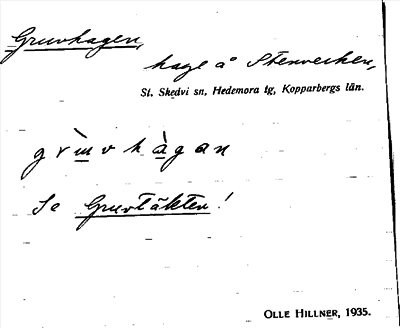 Gruvhagen,
hage å Stenvecken,
St. Skedvi sn, Hedemora tg, Kopparbergs län.
Se Gruvtäkten!
OLLE HILLNER, 1935.